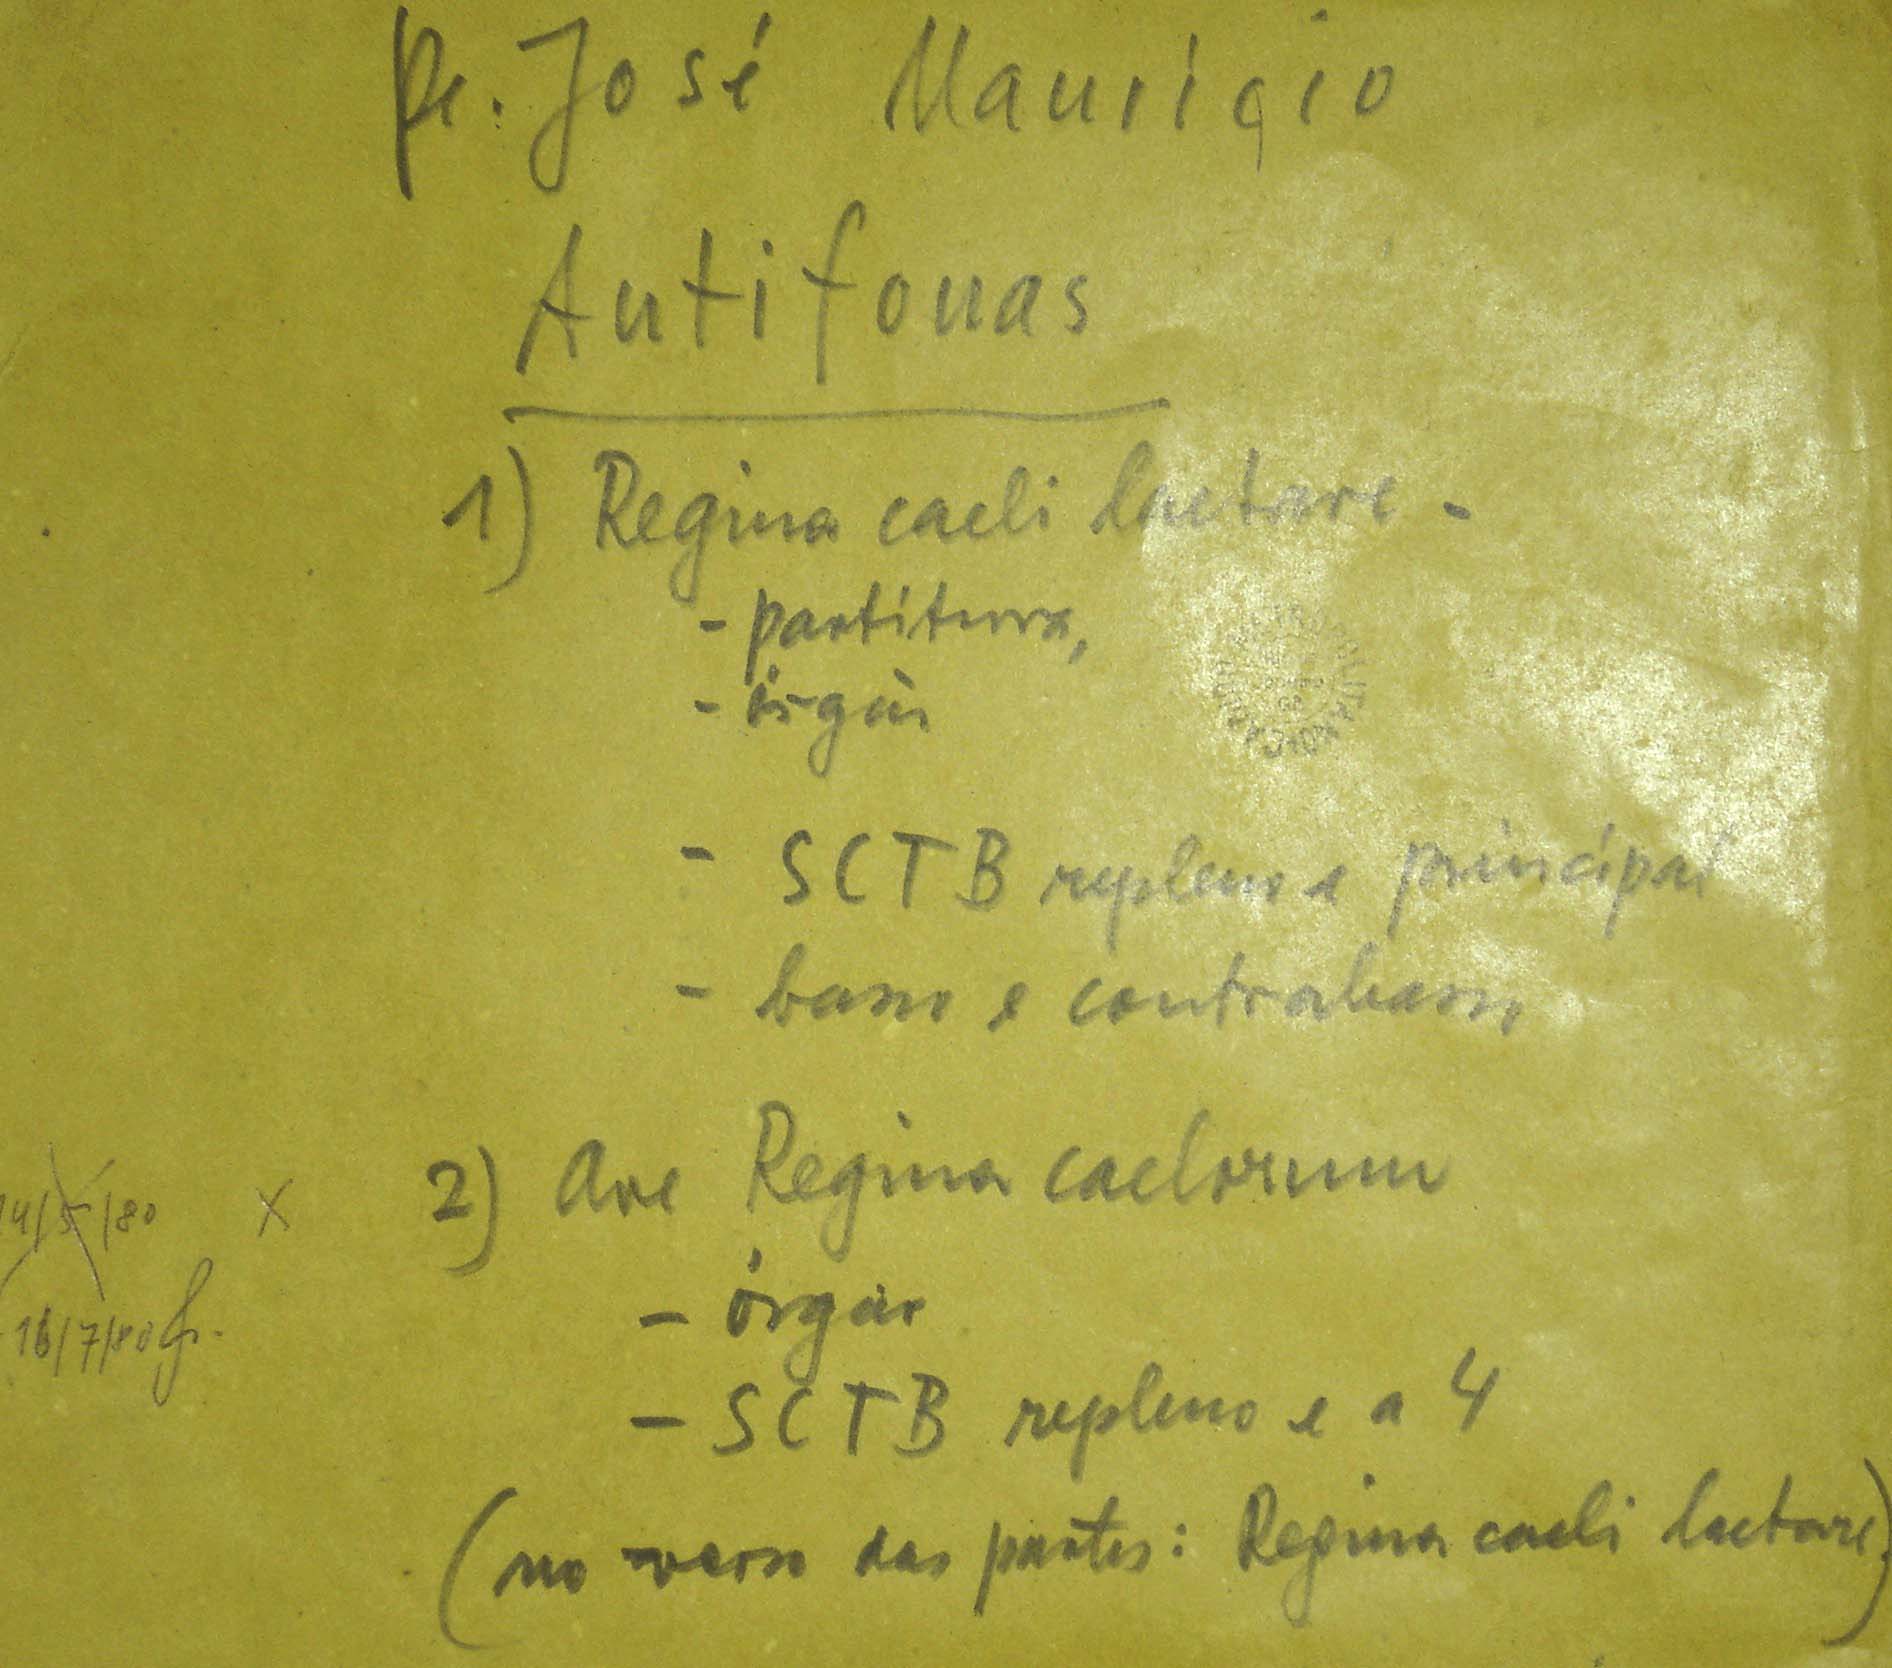 Pe. José Mauricio
Antifonas
1) Regina caeli laetare -
- partitura,
- órgão
- SCTB repleno e principal
- basso e contrabasso
14/5/80 X 2) Ave Regina caelorum
16/7/80
- órgão
- SCTB repleno e a 4
(no verso das partes: Regina caeli laetare)